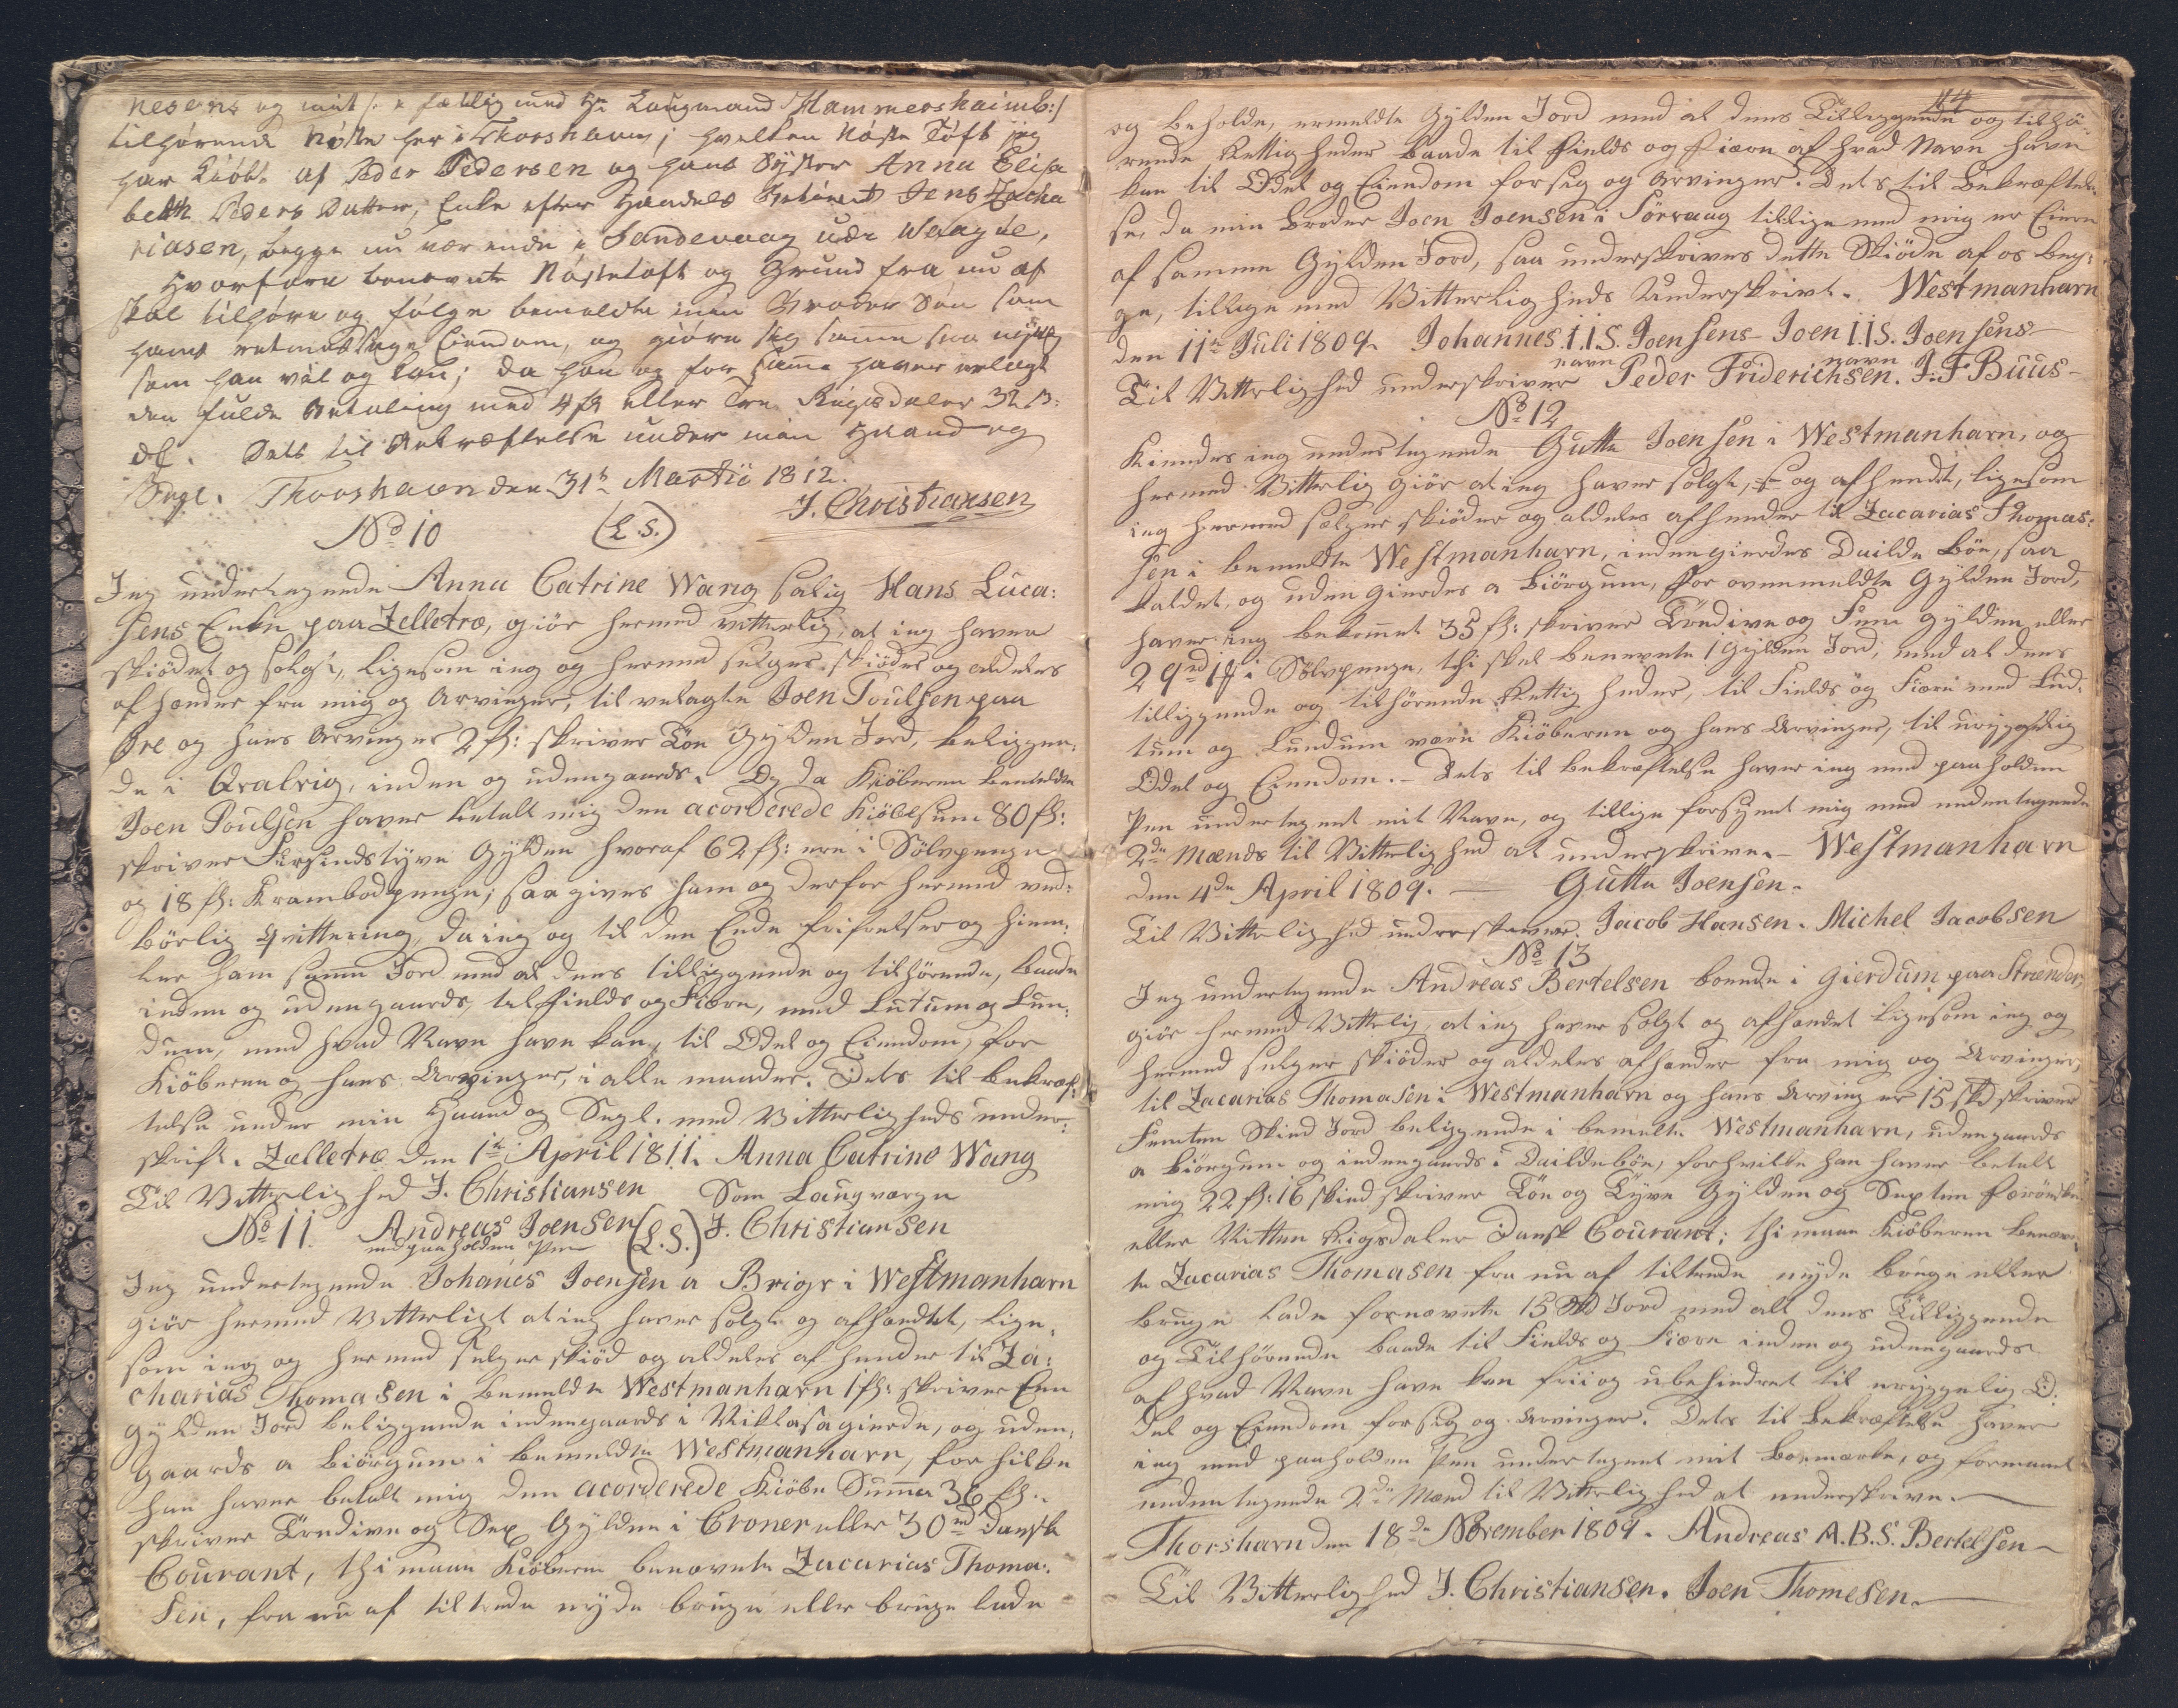 nesens og mit /: x fællig med Hr Laugmand Hammershaimb:/
tilhørende Nøste her i Thorshavn; hvilken Nøste Tøft jeg
har kiöbt af Peder Pedersen og hans Syster Anna Elisa
beth Peders Datter, Enke efter Handels Jens Zacha
riasen, begge nu værende i Sandevaag udi Waagöe,
Hvorfore benevnte Nöstetoft og Grund fra nu af
skal tilhøre og følge bemeldte min Broder Søn som
hans retmæssige Eiendom, og giøre sig samme saa nyttig
som han vil og kan; da han og for samme haver erlagt
den fulde Betaling med 4 fl eller Tre Rigsdaler 32 ß:
d. Dets til Bekræftelse under min Haand og
Segl. Thorshavn den 31te Martii 1812.
No 10 (L.S.) J. Christiansen
Jeg undertegnede Anna Catrine Wang salig Hans Luca:
sens Enke paa Zelletræ, giör hermed vitterlig, at ieg haver
skiödet og solgt, ligesom ieg og hermed selger skiöder og aldeles
afhender fra mig og Arvinger, til velagte Joen Poulsen paa
Øre og hans Arvinger 2 fl: skriver Toe Gylden Jord, beliggen:
de i Qvalvig, inden og udengaards. Og da Kiöberen bemeldte
Joen Poulsen haver betalt mig den acorderede Kiöbesum 80 fl:
skriver Firsindstyve Gylden hvoraf 62 fl: ere i Sölvpenge
og 18 fl: Krambodpenge; saa gives ham og derfor hermed ved:
börlig Qvittering, da ieg og til den Ende frihielser og hiem:
ler ham samme Jord med al dens tilliggende og tilhörende, baade
inden og udengaards, til fields og Fiære, med Lutum og Lun:
dum, med hvad Navn have kan, til Odel og Eiendom, for
Kiöberen og hans Arvinger, i alle maader. Dets til bekræf:
telse under min Haand og Segl. med Vitterligheds under:
skrift. Zelletræ den 1te April 1811. Anna Catrine Wang
Til Vitterlighed J. Christiansen Som Laugværge
No 11. Andreas Joensen (L.S.) J. Christiansen
med paaholden Pen
Jeg undertegnede Johanes Joensen a Brigr i Westmanhavn
giör hermed Vitterligt at ieg haver solgt og afhændet, lige:
som ieg og hermed selger skiöd og aldeles afhender til Za:
charias Thomasen i bemeldte Westmanhavn 1 fl: skriver Een
Gylden Jord beliggende indengaards i Niklasagierde, og uden:
gaards a Biörgum i bemeldte Westmanhavn, for hilke
han haver betalt mig den acorderede Kiöbe Summa 36 fl.
skriver Tredive og Sex Gylden i Croner eller 30 rd Dansk
Courant, thi maae Kiöberen benevnte Zacarias Thoma:
sen, fra nu af tiltræde nyde bruge eller bruge lade
114
og beholde, ermeldte Gylden Jord med al dens Tilleggende og tilhö:
rende Rettigheder baade til Fields og Fiære af hvad Navn have
kan til Odel og Eiendom for sig og Arvinger. Dets til Bekræftel:
se, da min Broder Joen Joensen i Sörvaag tillige med mig er Eiere
af samme Gylden Jord, saa underskrives dette Skiöde af os beg:
ge, tillige med Vitterligheds Underskrivt. Westmanharn
den 11te Juli 1809. Johannes I.I.S. Joensens Joen I.I.S. Joensens
navn navn
Til Vitterlighed underskriver Peder Friderichsen. J. F Buus
No 12
Kiendes ieg undertegnede Gutte Joensen i Westmanharn, og
hermed Vitterlig giör at ieg haver solgt, og afhendt, ligesom
ieg hermed sælger skiöder og aldeles afhender til Zacarias Thomas:
sen i bemeldte Westmanharn, indengierdes Duilde böe, saa
kaldet, og udengierdes a Biörgum, for ovenmeldte Gylden Jord,
haver ieg bekomet 35 fl: skriver Trediwe og Fem gylden eller
29 rd 1 i Sölvpenge, thi skal benevnte 1 Gylden Jord, med al dens
tilliggende og tilhörende Rettigheder, til Fields og Fiære med Lud:
tum og Lundum være Kiöberen og hans Arvinger, til uryggelig
Odel og Eiendom. Dets til bekræftelse haver ieg med paaholden
Pen undertegnet mit Navn, og tillige forsynet mig med undertegnede
2de Mænds til Vitterlighed at underskrive. Westmanharn
den 4de April 1809. Gutte Joensen.
Til Vitterlighed underskriver. Jacob Hansen. Michel Jacobsen
No 13
Jeg undertegnede Andreas Bertelsen boende i Gierdum paa Strænder,
giör hermed Vitterlig, at ieg haver solgt og afhændet ligesom ieg og
hermed selger skiöder og aldeles afhender fra mig og Arvinger,
til Zacarias Thomasen i Westmanharn og hans Arvinger 15 skd skriver
Femten Skind Jord beliggende i bemelte Westmanharn, udengaards
a Biörgum og indengaards i Duildeböe, for hvilke han haver betalt
mig 22 fl: 16 skind skriver Toe og Tyve Gylden og Sexten færöiske
eller Nitten Rigsdaler Dansk Courant; thi maae Kiöberen benevn:
te Zacarias Thomasen fra nu af tiltræde nyde bruge eller
bruge lade fornævnte 15 Skd Jord med all dens Tilliggende
og Tilhörende baade til Fields og Fiære inden og udengaards
af hvad Navn have kan frii og ubehindret til uryggelig O:
del og Eiendom for sig og Arvinger. Dets til bekræftelse haver
ieg med paaholden Pen undertegnet mit boemærke, og formaaet
undertegnede 2de Mænd til Vitterlighed at underskrive.
Thorsharn den 18de November 1809. Andreas A.B.S. Bertelsen
Til Vitterlighed J. Christiansen. Joen Thomesen.